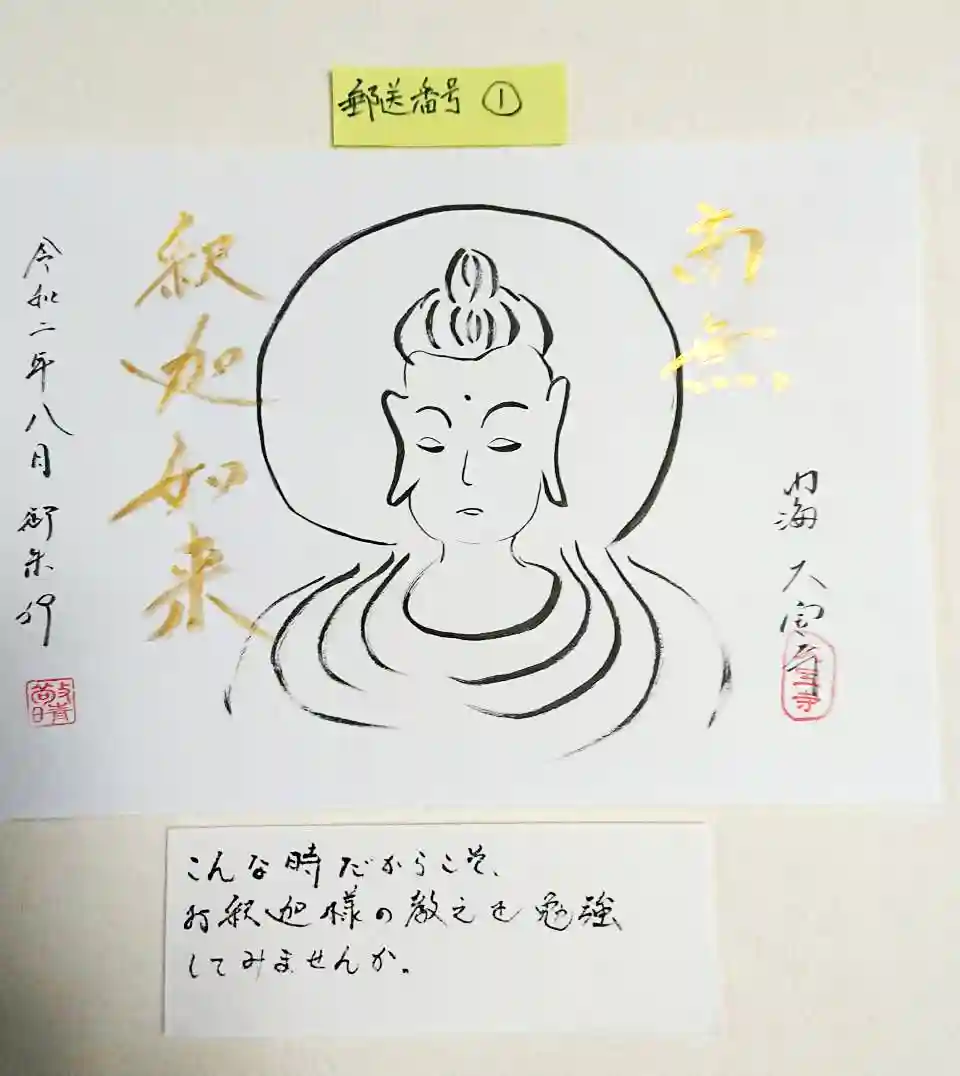 郵送番号 ①
南無
釈迦如来
内海 大宝寺
令和二年八月 御朱印
こんな時だからこそ、
お釈迦様の教えを勉強
してみませんか。